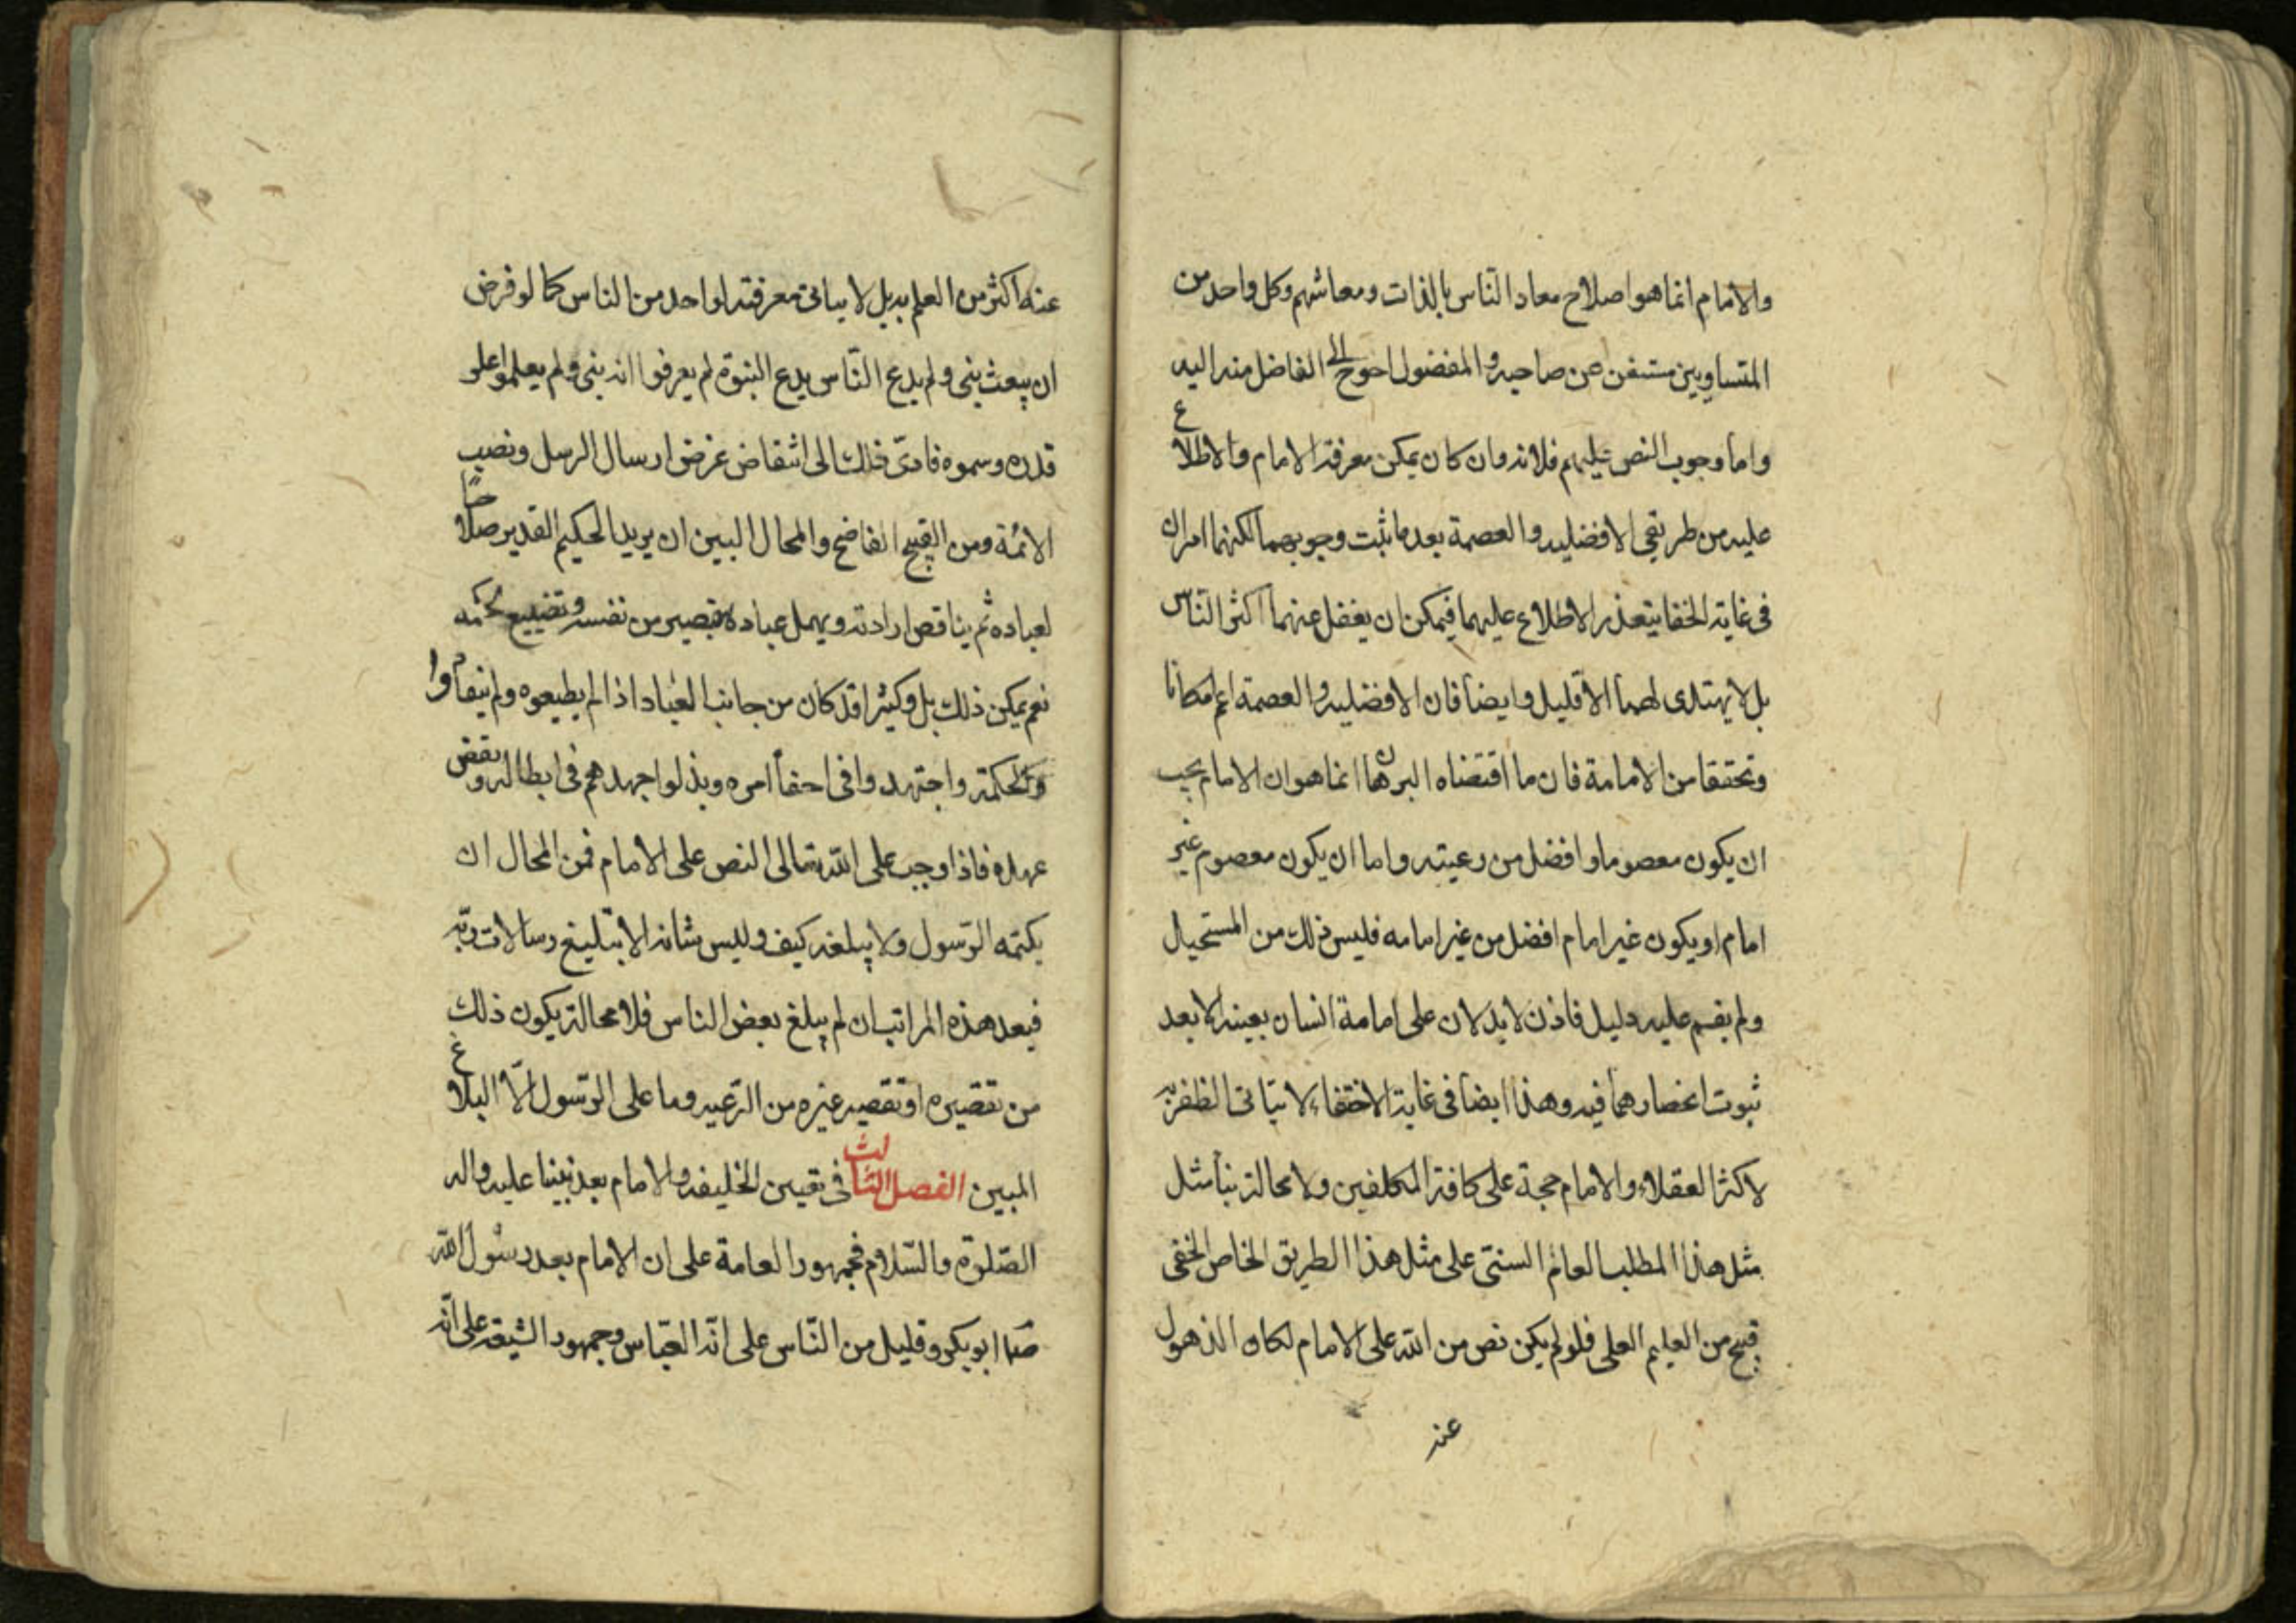 والامام انما هو اصلاح معاد الناس بالذات ومعاشهم وكل واحد من
المتساويين مستغن عن صاحبه والمفضول احوج الى الفاضل منه اليه
واما وجوب النص عليهم فلانه وان كان يمكن معرفة الامام والاطلاع
عليه من طريقي الافضليه والعصمة بعد ما ثبت وجوبهما لكنهما امران
فى غاية الخفا يتعذر الاطلاع عليهما فيمكن ان يغفل عنهما اكثر الناس
بل لا يهتدى لهما الا قليل وايضا فان الافضليه والعصمة اعم امكانا
وتحققا من الامامة فان ما اقتضاه البرهان انما هو ان الامام يجب
ان يكون معصوما وافضل من رعيته واما ان يكون معصوم غير
امام او يكون غير امام افضل من غير امامه فليس ذلك من المستحيل
ولم يقم عليه دليل فاذن لا يدلان على امامة انسان بعينه الا بعد
ثبوت انحصارهما فيه وهذا ايضا فى غاية الاختفاء لا يتاتى الظفر به
لاكثر العقلاء والامام حجة على كافة المكلفين ولا محالة بنأ مثل
مثل هذا المطلب العام السنى على مثل هذا الطريق الخاص الخفى
قبيح من العليم العلى فلو لم يكن نص من الله على الامام لكان الذهول
عنه
عنه اكثر من العلم به بل لا يتاتى معرفته لواحد من الناس كما لو فرض
ان يبعث نبى ولم يدع الناس بدع النبوة لم يعرفوا انه نبى ولم يعلموا علو
قدره وسموه فادى ذلك الى انتقاض غرض ارسال الرسل ونصب
الائمة ومن القبيح الفاضح والمحال البين ان يريد الحكيم القدير صلاحا
لعباده ثم يناقض ارادته ويهمل عباده بتقصير من نفسه وتضييع لحكمه
نعم يمكن ذلك بل وكثيرا قد كان من جانب العباد اذا لم يطيعوه ولم ينقادوا
لحكمته واجتهدوا فى اخفأ امره وبذلوا جهدهم فى ابطاله ونقض
عهده فاذا وجب على الله تعالى النص على الامام فمن المحال ان
يكتمه الرسول ولا يبلغه كيف وليس شانه الا تبليغ رسالات ربه
فبعد هذه المراتب ان لم يبلغ بعض الناس فلا محالة يكون ذلك
من تقصيره او تقصير غيره من الرعيه وما على الرسول الّا البلاغ
المبين الفصل الثالث فى تعيين الخليفه والامام بعد نبينا عليه واله
الصلوة والسلام فجمهور العامة على ان الامام بعد رسول الله
ابو بكر وقليل من الناس على انّه العباس وجمهور الشيعه على انّه